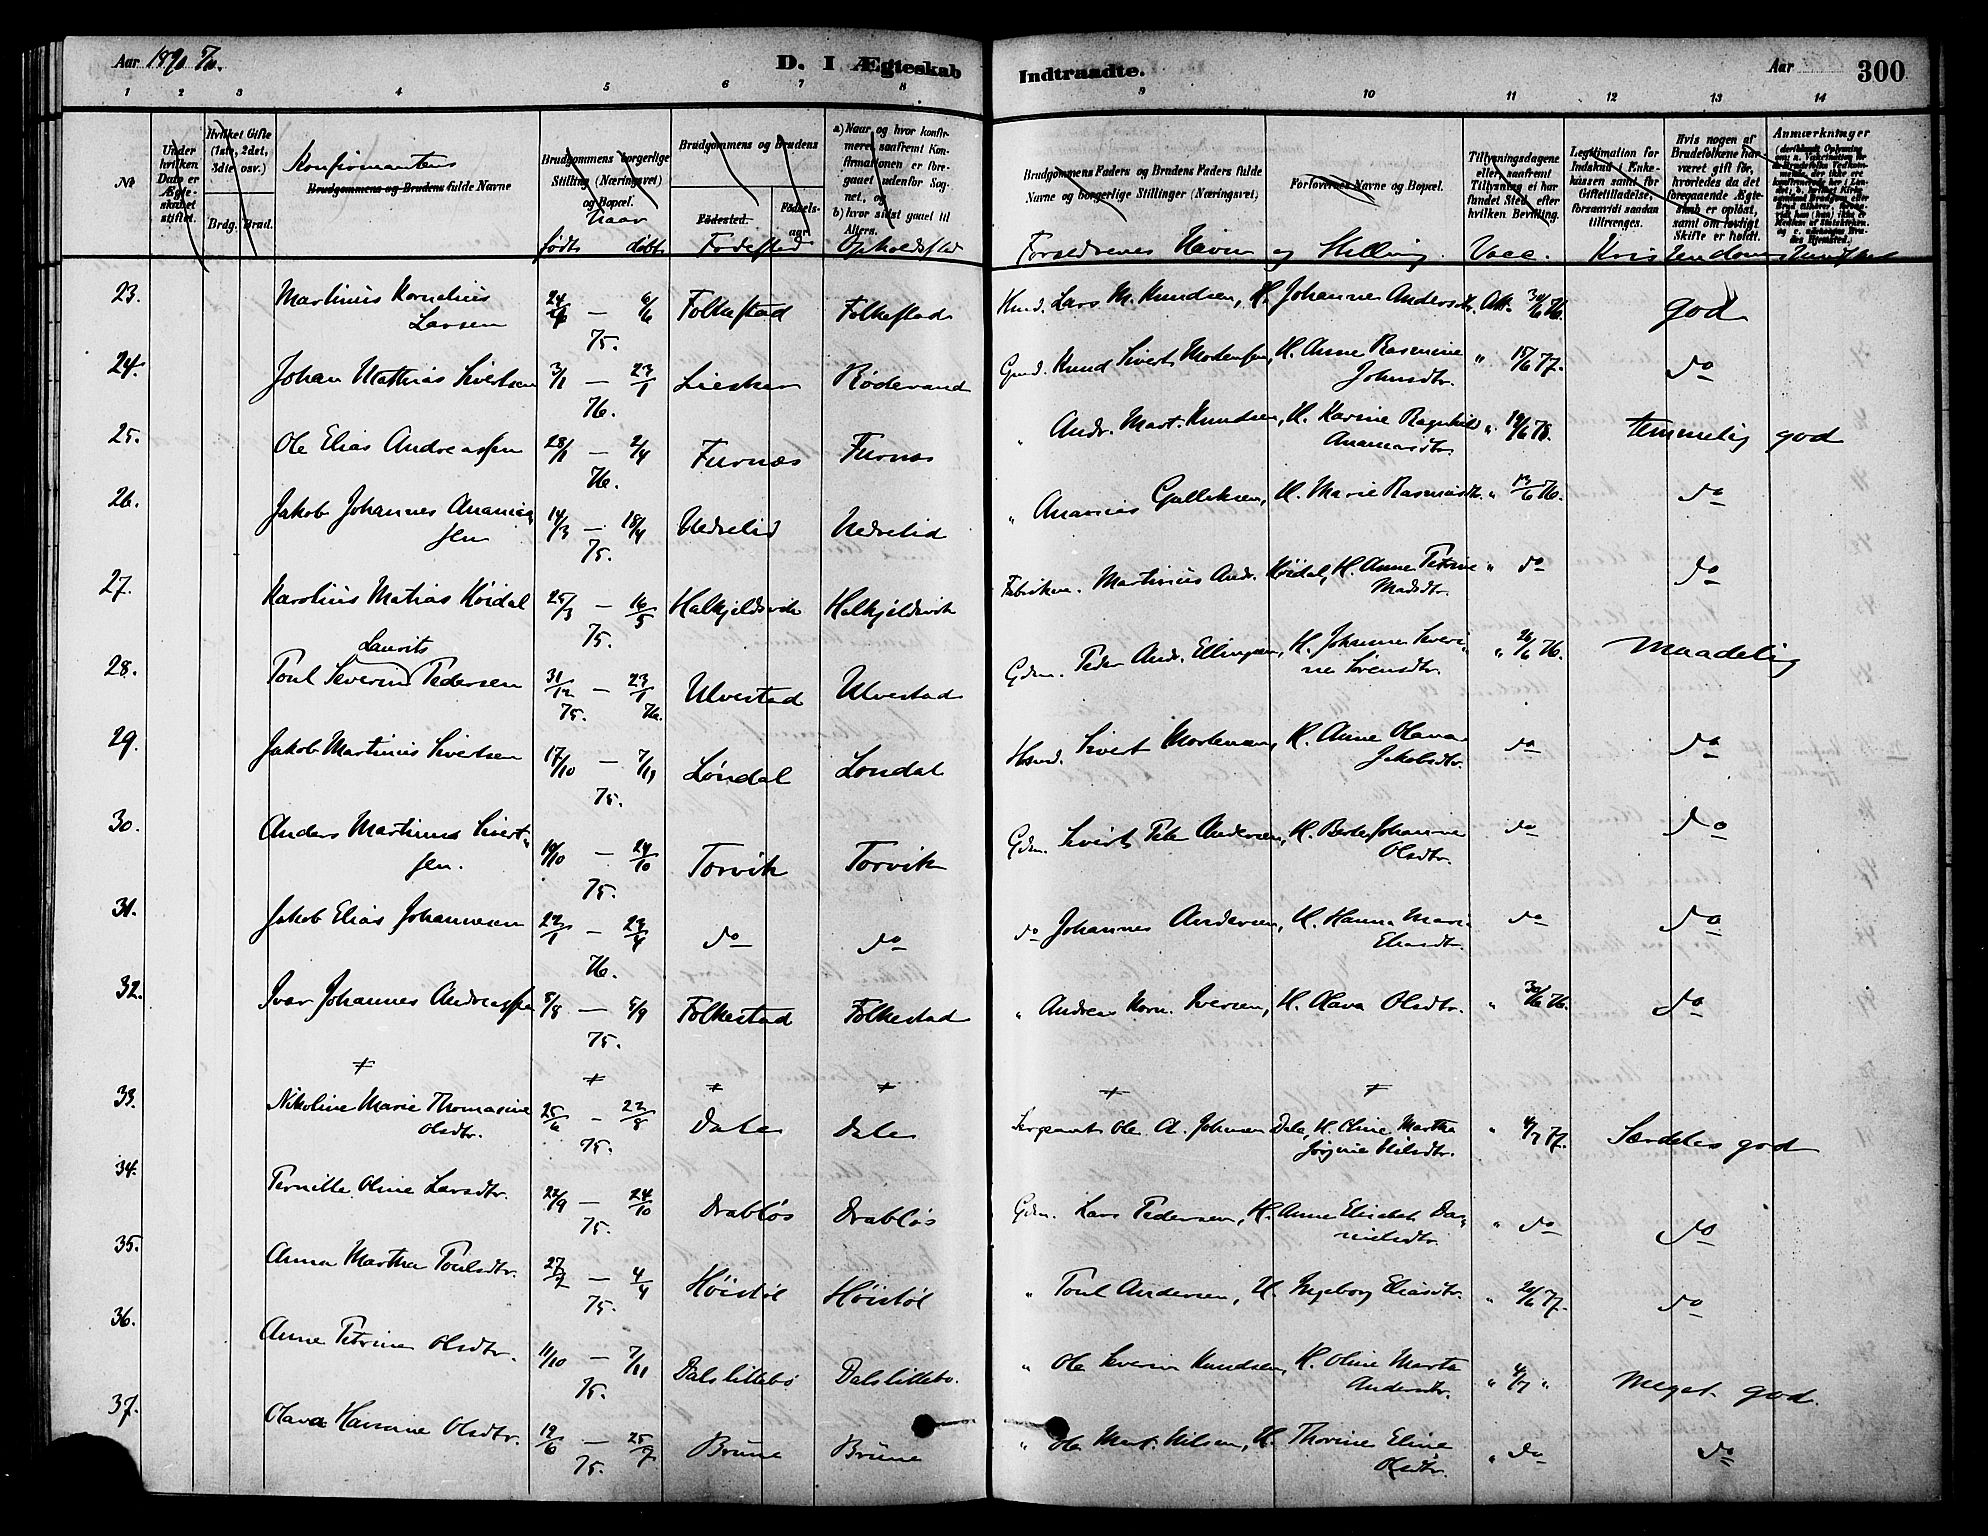 Aar 1890 5/10.
D. I Ægteskab
Indtraadte.
Aar
300
1 2 3 4 5 6 7 8 9 10 11 12 13 14
No.
Under hvilken Dato er Ægteskabet stiftet.
Hvilket Gifte (1ste, 2det, 3die osv.)
Brdg. Brud.
Konfirmantens
Brudgommens og Brudens fulde Navne
Brudgommens borgerlige Stilling (Næringsvei) og Bopæl.
naar
født døbt
Brudgommens og Brudens
Fødested. Fødselsaar
Fødestad
a) Naar og hvor konfirmeret saafremt Konfirmationen er foregaaet udenfor Sognet, og
b) hvor sidst gaaet til Alters.
Opholdsstad
Brudgommens Faders og Brudens Faders fulde Navne og borgerlige Stillinger (Næringsvei)
Forlovernes Navne og Bopæl.
Forældrenes Navn og Stilling.
Tillysningsdagene eller, saafremt Tillysning ei har fundet Sted, efter hvilken Bevilling.
Vacc.
Legitimation for Indskud i Enkekassen samt for Giftetilladelse, forsaavidt saadan tiltrænges.
Hvis nogen af Brudefolkene har været gift før, hvorledes da det foregaaende Ægteskab er opløst, samt om lovligt Skifte er holdt.
Anmærkninger
Kristendomskundskab
23. Martinus Kornelius Larsen 24/4 — 6/6 75. Folkestad Folkestad Husmd. Lars M. Knudsen, H. Johanne Andersdtr. Att. 30/6 76. god
24. Johan Mathias Sivertsen 3/1 — 23/1 76. Lieskar Rødevand Gmd. Knud Sivert Mortensen, H. Anne Rasmine Johnsdtr. " 15/6 77. do
25. Ole Elias Andreassen 28/1 — 2/4 76. Furnæs Furnæs " Andr. Mart. Knudsen, H. Karine Ragnhild Ananiasdtr. " 19/6 78. temmelig god
26. Jakob Johannes Ananiassen 14/3 — 18/4 75. Nedrelid Nedrelid " Ananias Gulliksen, H. Marie Rasmusdtr. " 13/6 76. do
27. Karolius Matias Køidal 25/3 — 16/5 75. Halkjeldsvik Halkjeldsvik Fabrikeier. Martinus Andr. Køidal, H. Anne Petrine Madsdtr. " do do
28. Poul Severin Laurits Pedersen 31/12 75. — 23/1 76. Ulvestad Ulvestad Gdm. Peder Andr. Ellingsen, H. Johanne Severine Sørensdtr. " 26/6 76. Maadelig
29. Jakob Martinus Sivertsen 17/10 — 7/11 75. Løndal Løndal Husmd. Sivert Mortensen, H. Anne Olava Jakobsdtr. do do
30. Anders Martinus Sivertsen. 10/10 — 24/10 75. Torvik Torvik Gdm. Sivert Peter Andersen, H. Berte Johanne Olsdtr. do do
31. Jakob Elias Johannesen 22/1 — 23/4 76. do do do Johannes Andersen, H. Hanna Marie Eliasdtr. do do
32. Ivar Johannes Andreassen 8/8 — 5/9 75. Folkestad Folkestad " Andreas Korn. Iversen, H. Olava Olsdtr. " 30/6 76. do
+ + + + + +
33. Nikoline Marie Thomasine Olsdtr. 25/6 — 22/8 75. Dale Dale Sergeant Ole A. Johnsen Dale, H. Oline Martha Jørgine Nilsdtr. " 4/7 77. Særdeles god
34. Pernille Oline Larsdtr. 22/9 — 24/10 75. Drabløs Drabløs Gdm. Lars Pedersen, H. Anne Elisabet Danielsdtr. " do do
35. Anna Martha Poulsdtr. 27/2 — 4/4 75. Høistøl Høistøl " Poul Andersen, H. Ingeborg Eliasdtr. " 26/6 77. do
36. Anne Petrine Olsdtr. 11/10 — 7/11 75. Dalslillebø Dalslillebø. " Ole Severin Knudsen, H. Oline Marta Andersdtr. " 4/7 " Meget god.
37. Olava Hansine Olsdtr. 12/6 — 25/7 75. Brune Brune " Ole Mart. Nilsen, H. Thorine Eline Olsdtr. " do do